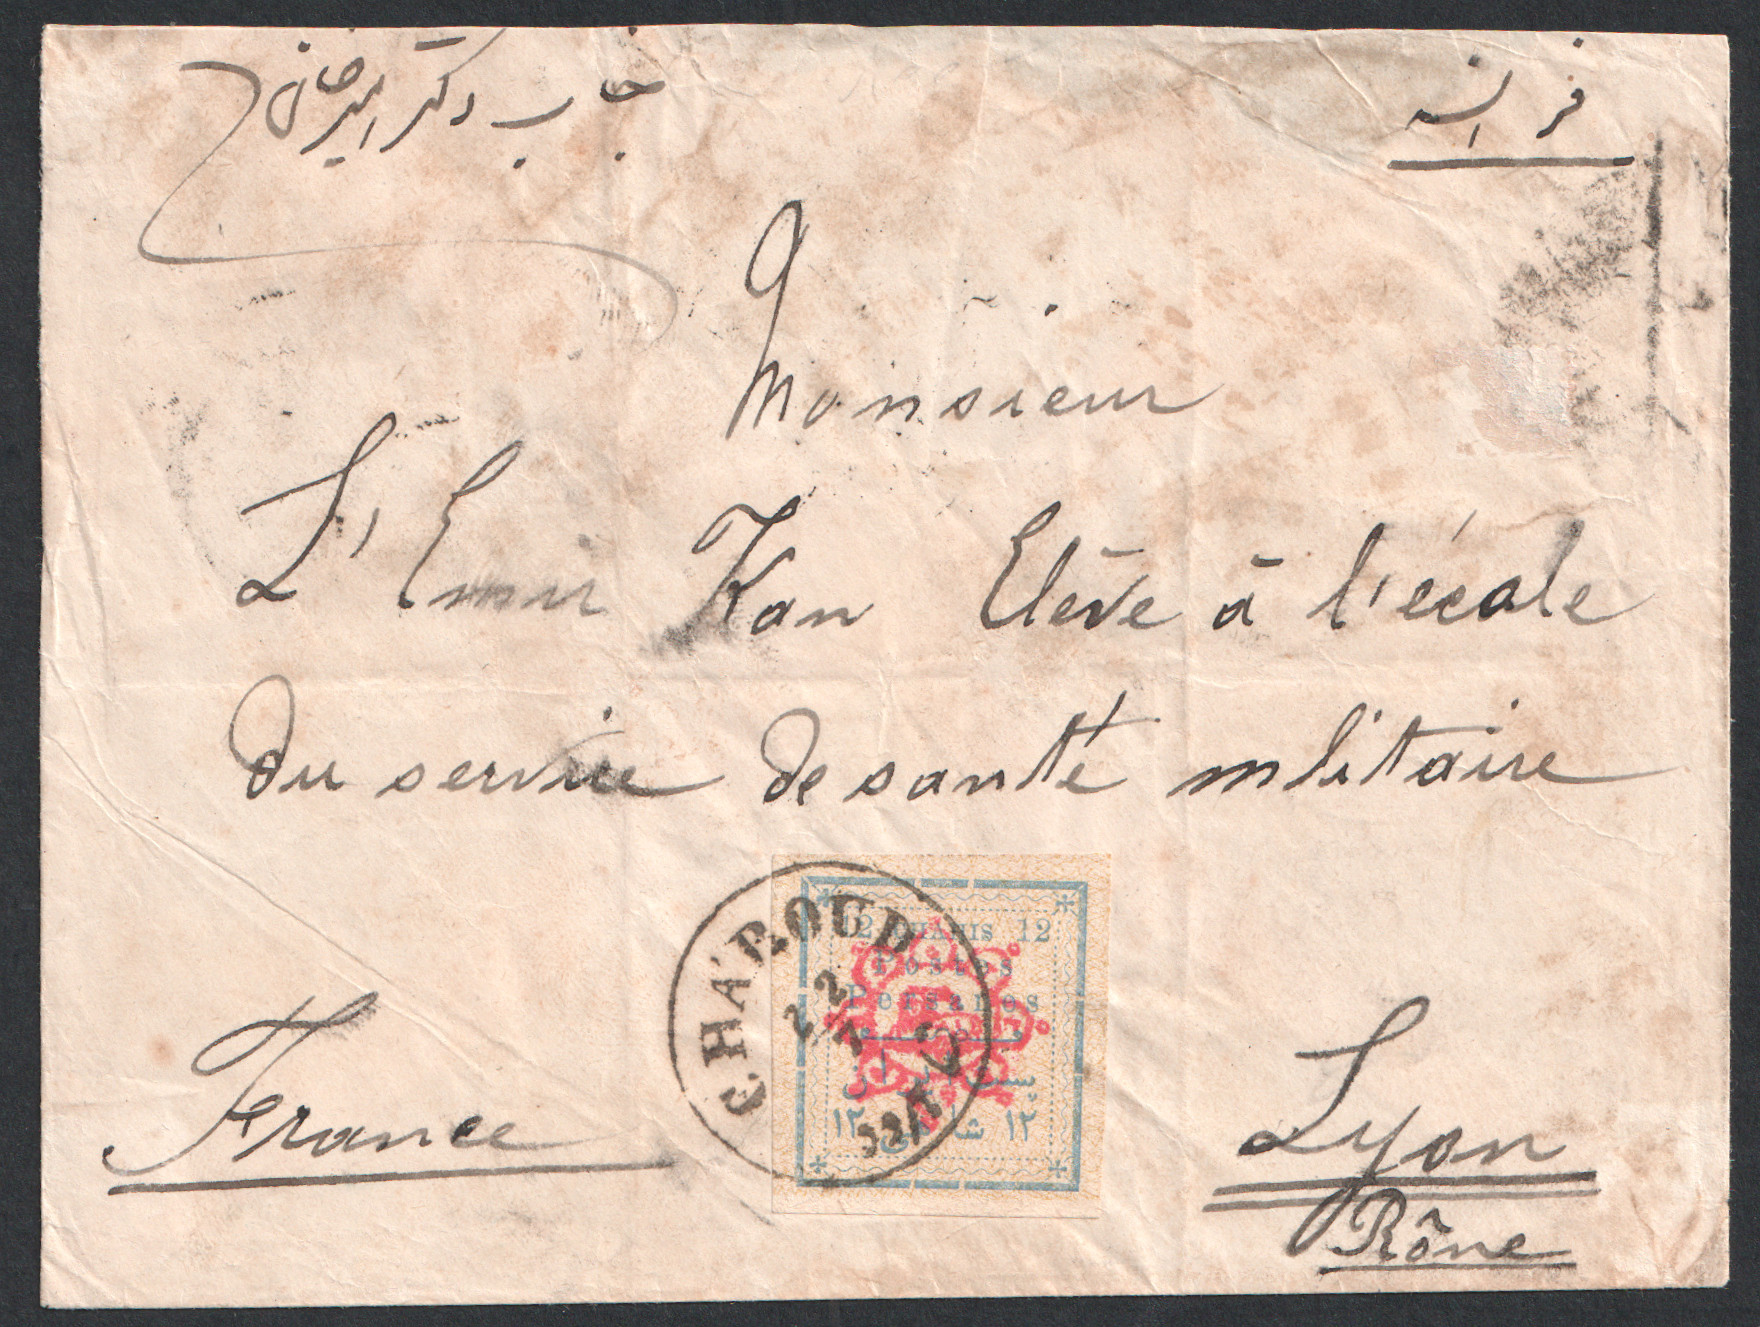 فرانسه
جناب دکتر امیر خان
Monsieur
L'Emir Kan Elève à l'école
du service de santé mlitaire
CHAROUD
22
12 CHAHIS 12
Postes
Persanes
۱۲ شاهی ۱۲
France
Lyon
Rône